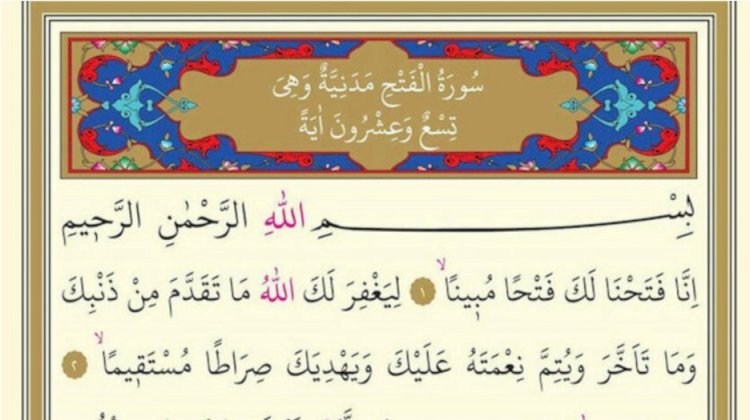 سُورَةُ الْفَتْحِ مَدَنِيَّةٌ وَهِيَ
تِسْعٌ وَعِشْرُونَ اٰيَةً
بِسْمِ اللّٰهِ الرَّحْمٰنِ الرَّح۪يمِ
اِنَّا فَتَحْنَا لَكَ فَتْحًا مُب۪ينًاۙ ﴿١﴾ لِيَغْفِرَ لَكَ اللّٰهُ مَا تَقَدَّمَ مِنْ ذَنْبِكَ
وَمَا تَاَخَّرَ وَيُتِمَّ نِعْمَتَهُ عَلَيْكَ وَيَهْدِيَكَ صِرَاطًا مُسْتَق۪يمًاۙ ﴿٢﴾